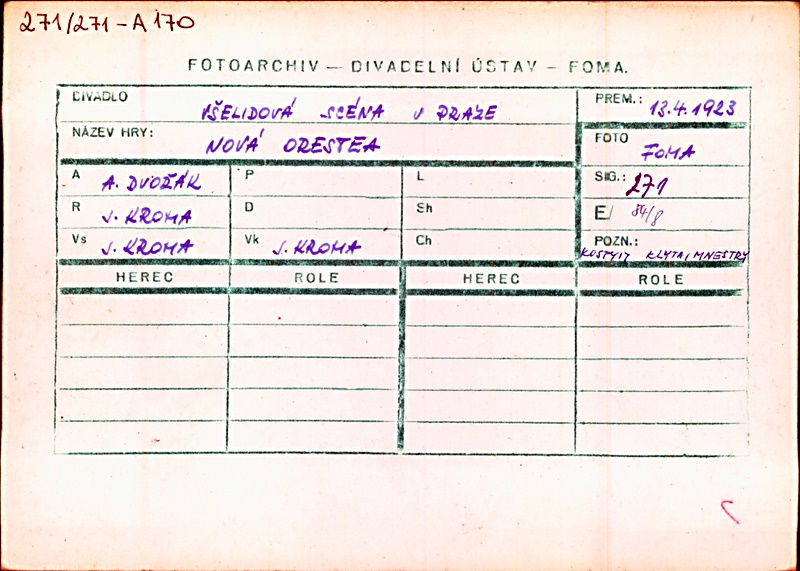 271/271-A 170
FOTOARCHIV — DIVADELNÍ ÚSTAV — FOMA.
DIVADLO VŠELIDOVÁ SCÉNA V PRAZE PREM.: 13.4.1923
NÁZEV HRY: NOVÁ ORESTEA FOTO FOMA
A A. DVOŘÁK P L SIG.: 271
R J. KROMA D Sh E/ 84/8
Vs J. KROMA Vk J. KROMA Ch POZN.: KOSTYM KLYTAIMNESTRY
HEREC ROLE HEREC ROLE